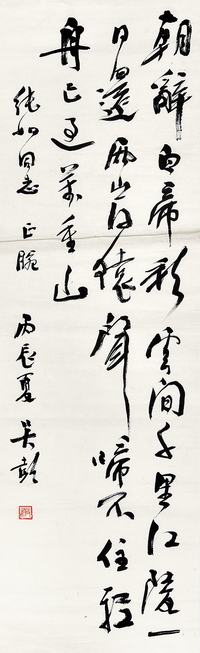 朝辭白帝彩雲間千里江陵一
日還兩岸猿聲啼不住輕
舟已過萬重山
純如同志 正腕
丙辰夏 吴彭